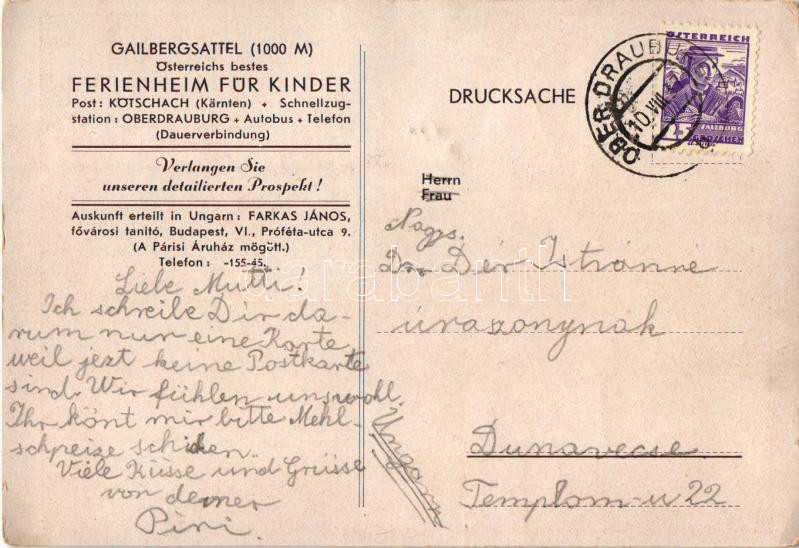 GAILBERGSATTEL (1000 M)
Österreichs bestes
FERIENHEIM FÜR KINDER
Post: KÖTSCHACH (Kärnten) + Schnellzug-
station: OBERDRAUBURG + Autobus + Telefon
(Dauerverbindung)
Verlangen Sie
unseren detailierten Prospekt!
Auskunft erteilt in Ungarn: FARKAS JÁNOS,
fővárosi tanító, Budapest, VI., Próféta-utca 9.
(A Párisi Áruház mögött.)
Telefon: -155-45.
Liebe Mutti!
Ich schreibe Dir da-
rum nur eine Karte
weil jezt keine Postkarte
sind. Wir fühlen uns wohl.
Ihr könt mir bitte Mehl-
schpeize schiken.
Viele Küsse und Grüsse
von deiner
Piri.
DRUCKSACHE
OBER DRAUBURG
10.VIII
ÖSTERREICH
SALZBURG
GROSCHEN
Herrn
Frau
Nagys.
Dr. Dér Istvánné
úrasszonynak
Dunavecse
Templom-u 22
Ungarn
darabanth